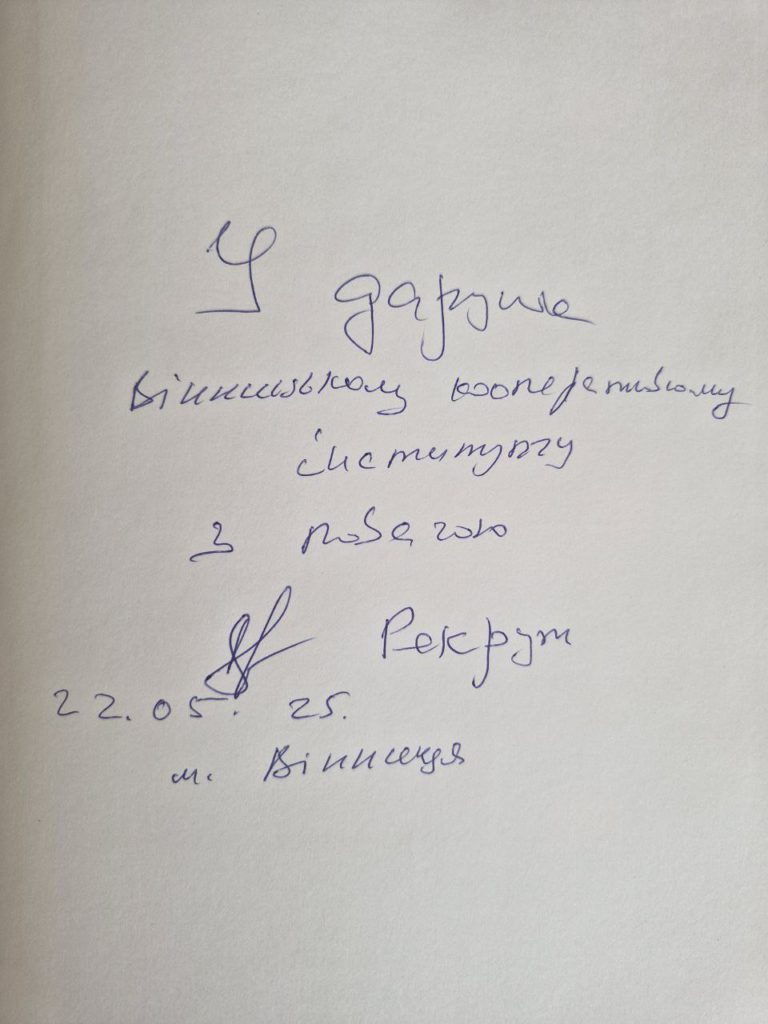 У дарунок
Вінницькому кооперативному
інституту
З повагою
Рекрут
22.05. 25.
м. Вінниця